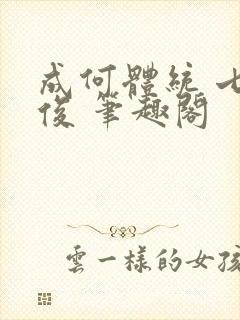 成何體統 七
俊 筆趣閣
雲一樣的女孩